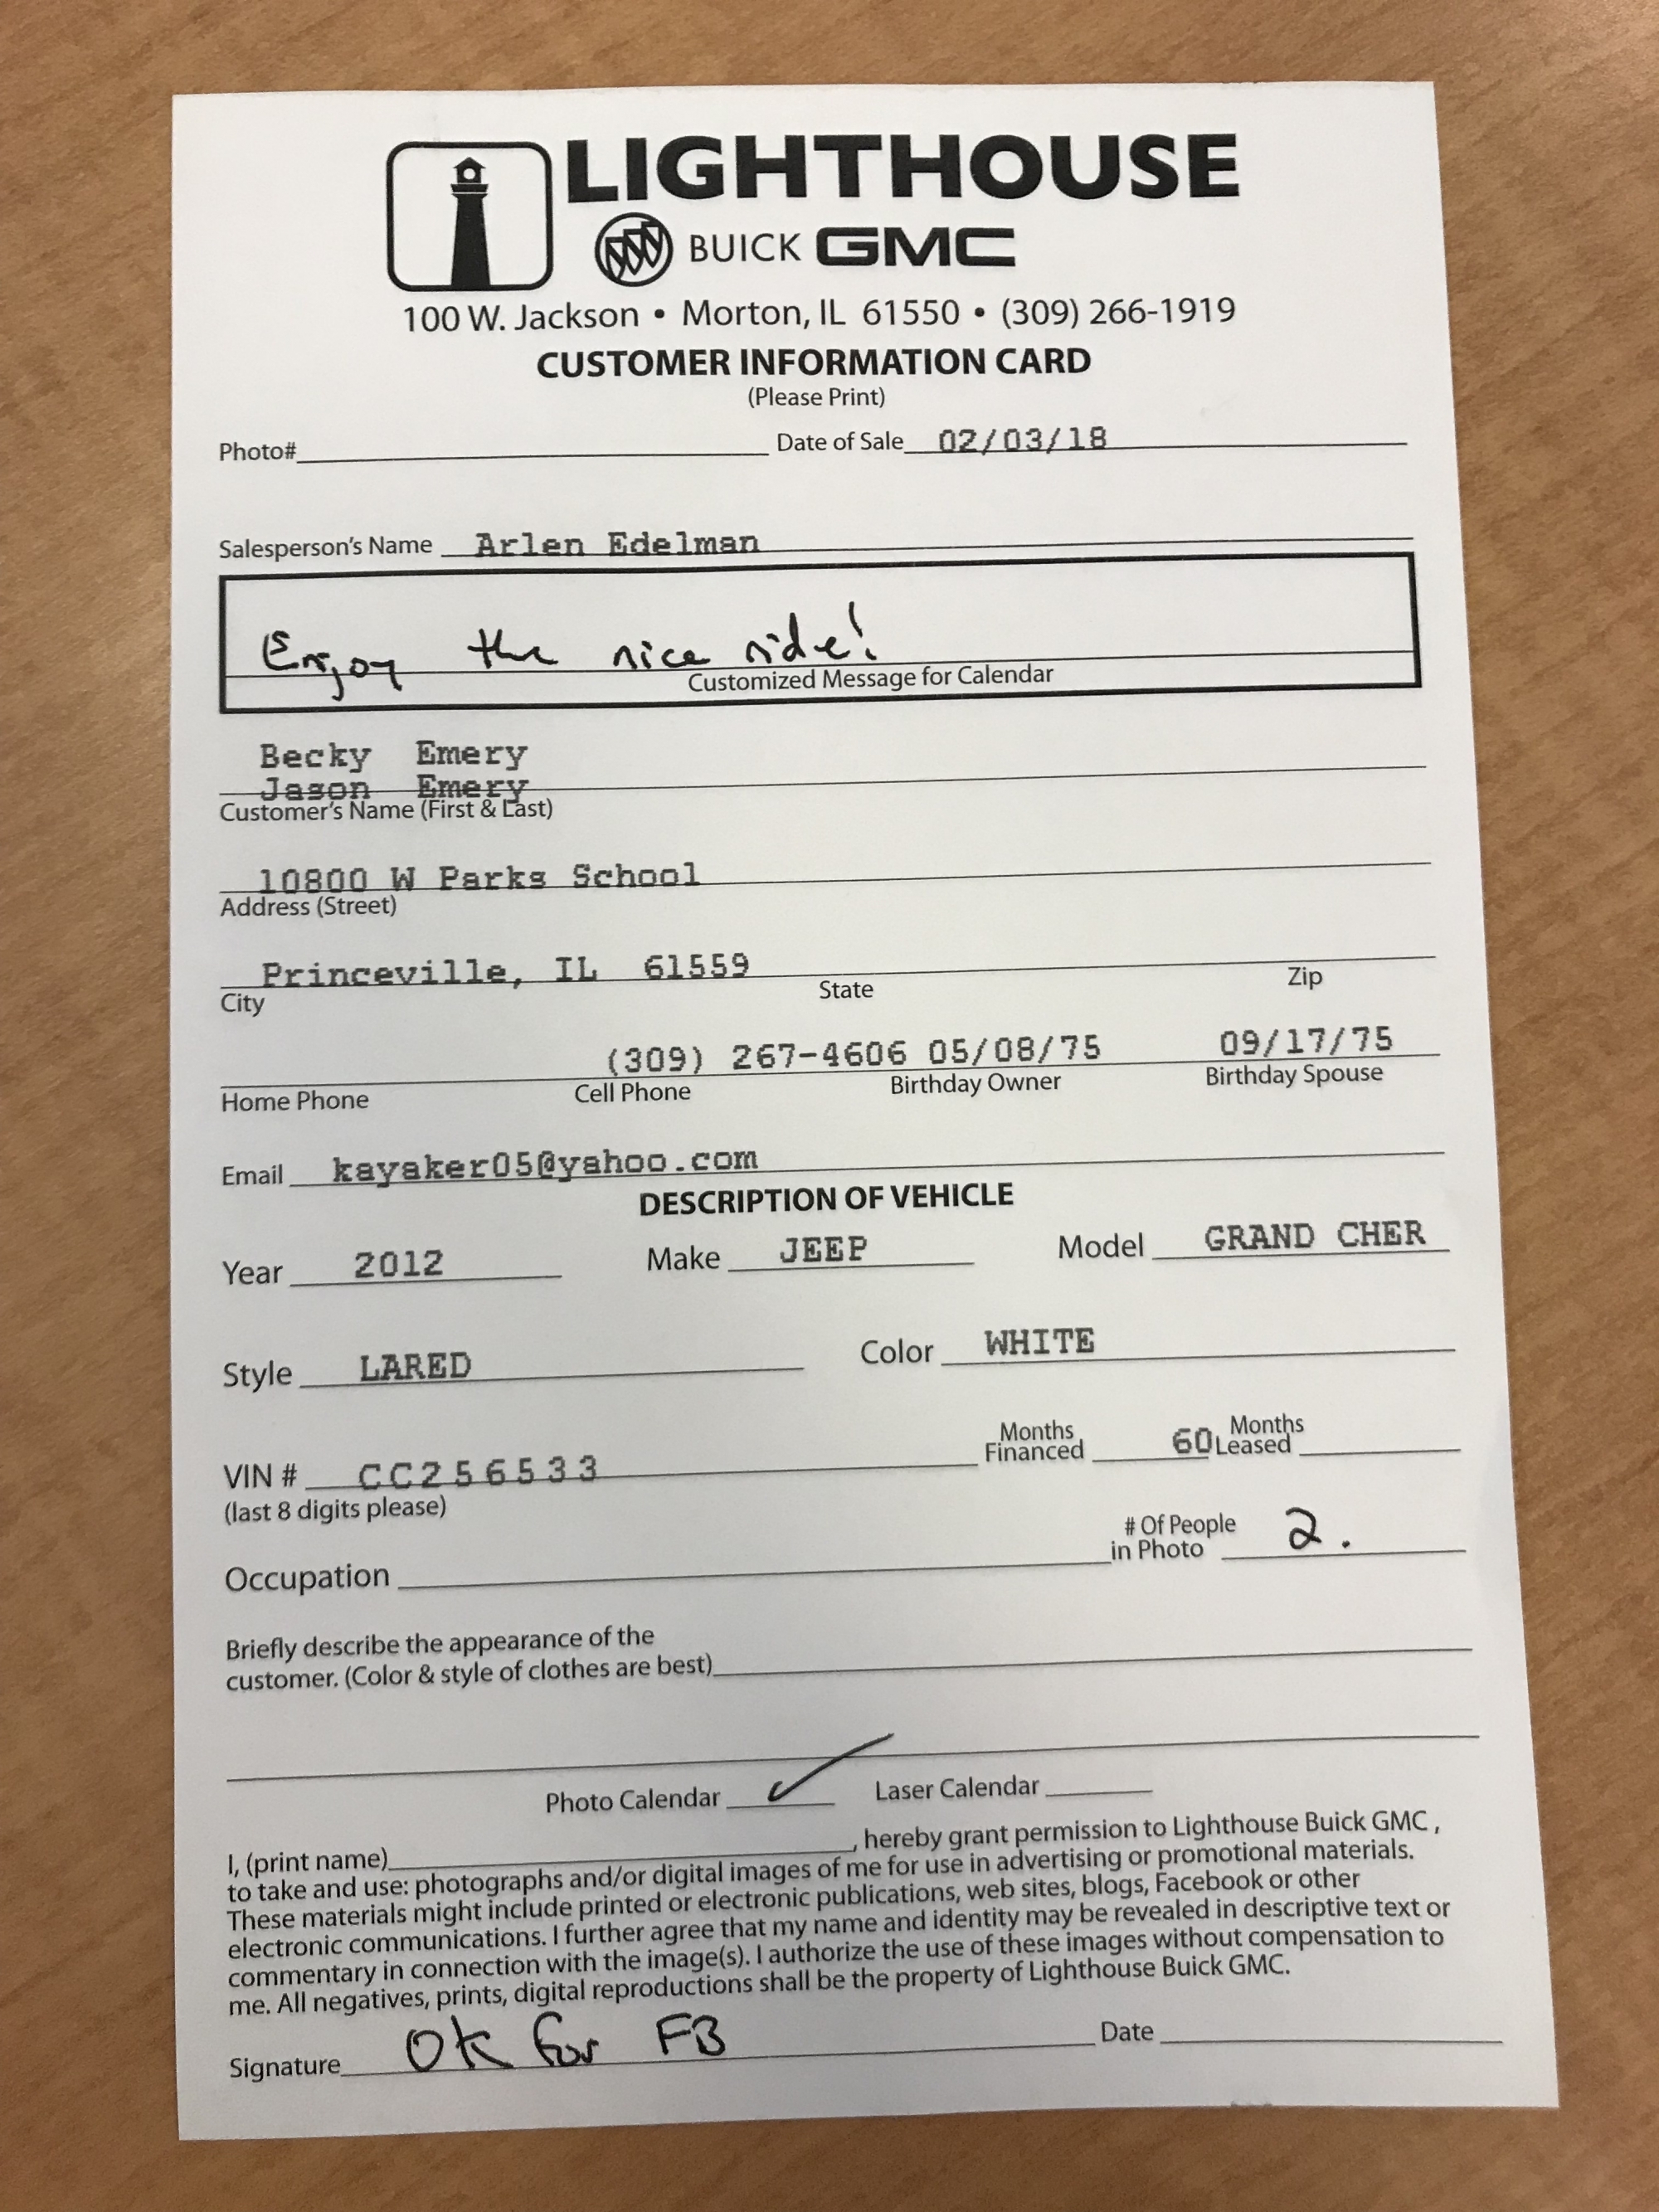 LIGHTHOUSE
BUICK GMC
100 W. Jackson • Morton, IL 61550 • (309) 266-1919
CUSTOMER INFORMATION CARD
(Please Print)
Photo# Date of Sale 02/03/18
Salesperson's Name Arlen Edelman
Enjoy the nice ride!
Customized Message for Calendar
Becky Emery
Jason Emery
Customer's Name (First & Last)
10800 W Parks School
Address (Street)
Princeville, IL 61559
City State Zip
(309) 267-4606 05/08/75 09/17/75
Home Phone Cell Phone Birthday Owner Birthday Spouse
Email kayaker05@yahoo.com
DESCRIPTION OF VEHICLE
Year 2012 Make JEEP Model GRAND CHER
Style LARED Color WHITE
VIN # CC256533 Months Financed 60 Months Leased
(last 8 digits please)
Occupation # Of People in Photo 2.
Briefly describe the appearance of the
customer. (Color & style of clothes are best)
Photo Calendar ✓ Laser Calendar
I, (print name), hereby grant permission to Lighthouse Buick GMC ,
to take and use: photographs and/or digital images of me for use in advertising or promotional materials.
These materials might include printed or electronic publications, web sites, blogs, Facebook or other
electronic communications. I further agree that my name and identity may be revealed in descriptive text or
commentary in connection with the image(s). I authorize the use of these images without compensation to
me. All negatives, prints, digital reproductions shall be the property of Lighthouse Buick GMC.
Signature OK for FB Date